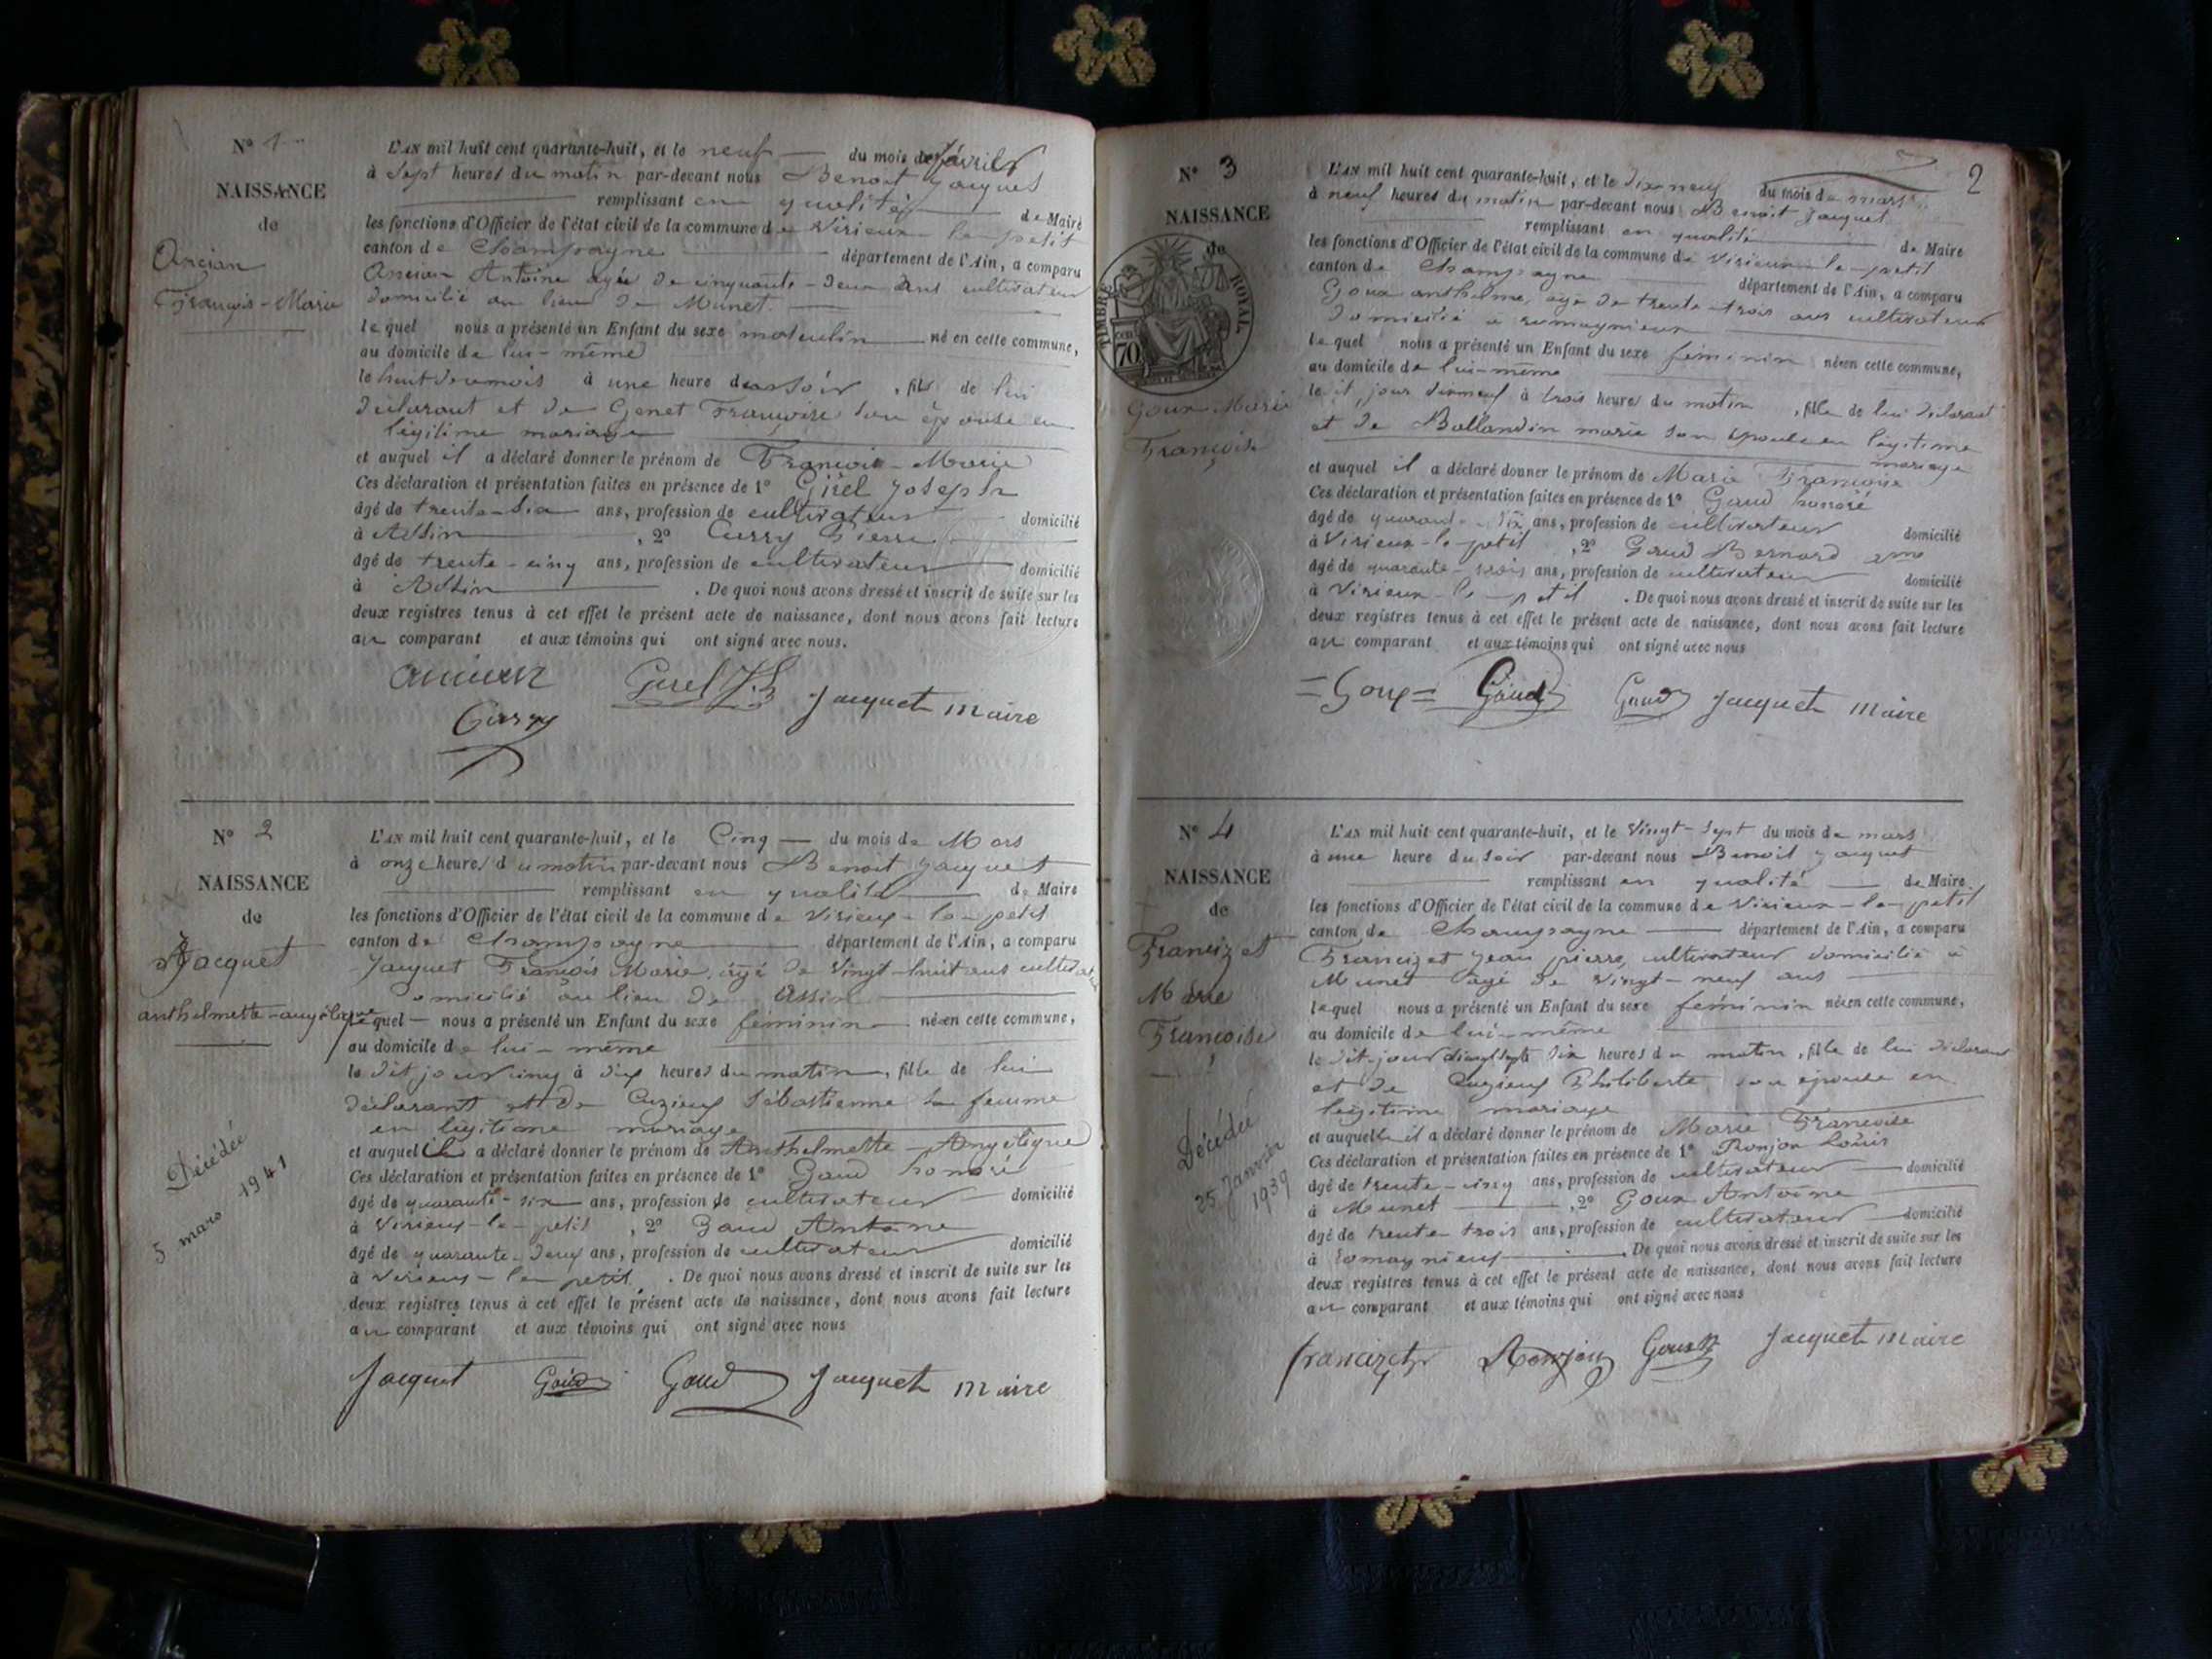 N° 1
NAISSANCE
de
Ancian
François-Marie
L'AN mil huit cent quarante-huit, et le neuf du mois de février
à sept heures du matin par-devant nous Benoit Jacquet
remplissant en qualité de Maire
les fonctions d'Officier de l'état civil de la commune de Virieux-le-petit
canton de Champagne département de l'Ain, a comparu
Ancian Antoine agée de cinquante-deux ans cultivateur
domicilié au lieu de Munet.
lequel nous a présenté un Enfant du sexe masculin né en cette commune,
au domicile de lui-même
le huit du mois à une heure du soir, fils de lui
déclarant et de Genet Françoise son épouse en
légitime mariage
et auquel il a déclaré donner le prénom de François-Marie
Ces déclaration et présentation faites en présence de 1° Girel Joseph
âgé de trente-six ans, profession de cultivateur domicilié
à Assin, 2° Cussy Pierre
âgé de trente-cinq ans, profession de cultivateur domicilié
à Assin. De quoi nous avons dressé et inscrit de suite sur les
deux registres tenus à cet effet le présent acte de naissance, dont nous avons fait lecture
au comparant et aux témoins qui ont signé avec nous.
ancian Girel Jh Jacquet Maire
Cussy
N° 2
NAISSANCE
de
Jacquet
anthelmette-angélique
Décédée
5 mars 1941
L'AN mil huit cent quarante-huit, et le Cinq du mois de Mars
à onze heures du matin par-devant nous Benoit Jacquet
remplissant en qualité de Maire
les fonctions d'Officier de l'état civil de la commune de Virieux-le-petit
canton de Champagne département de l'Ain, a comparu
Jacquet François Marie, âgé de vingt-huit ans cultivateur
domicilié au lieu de Assin
lequel nous a présenté un Enfant du sexe féminin née en cette commune,
au domicile de lui-même
le dit jour cinq à dix heures du matin, fille de lui
déclarant et de Cuzieux Sébastienne sa femme
en légitime mariage
et auquel il a déclaré donner le prénom de Anthelmette-Angélique
Ces déclaration et présentation faites en présence de 1° Gaud honoré
âgé de quarante-six ans, profession de cultivateur domicilié
à Virieux-le-petit, 2° Gaud Antoine
âgé de quarante-deux ans, profession de cultivateur domicilié
à Virieux-le-petit. De quoi nous avons dressé et inscrit de suite sur les
deux registres tenus à cet effet le présent acte de naissance, dont nous avons fait lecture
au comparant et aux témoins qui ont signé avec nous
Jacquet Gaud Gaud Jacquet Maire
2
N° 3
NAISSANCE
de
TIMBRE ROYAL
70
Goux Marie
Françoise
L'AN mil huit cent quarante-huit, et le dix neuf du mois de mars
à neuf heures du matin par-devant nous Benoit Jacquet
remplissant en qualité de Maire
les fonctions d'Officier de l'état civil de la commune de Virieux-le-petit
canton de Champagne département de l'Ain, a comparu
Goux anthelme, agé de trente-trois ans cultivateur
domicilié à romagnieux
lequel nous a présenté un Enfant du sexe féminin née en cette commune,
au domicile de lui-même
le dit jour dixneuf à trois heures du matin, fille de lui déclarant
et de Ballandin marie son épouse en légitime
mariage
et auquel il a déclaré donner le prénom de Marie Françoise
Ces déclaration et présentation faites en présence de 1° Gaud honoré
âgé de quarante-six ans, profession de cultivateur domicilié
à Virieux-le-petit, 2° Gaud Bernard
âgé de quarante-trois ans, profession de cultivateur domicilié
à Virieux-le-petit. De quoi nous avons dressé et inscrit de suite sur les
deux registres tenus à cet effet le présent acte de naissance, dont nous avons fait lecture
au comparant et aux témoins qui ont signé avec nous
=Goux= Gaud Gaud Jacquet Maire
N° 4
NAISSANCE
de
Francizet
Marie
Françoise
Décédée
25 Janvier
1939
L'AN mil huit cent quarante-huit, et le Vingt-sept du mois de mars
à une heure du soir par-devant nous Benoit Jacquet
remplissant en qualité de Maire.
les fonctions d'Officier de l'état civil de la commune de Virieux-le-petit
canton de Champagne département de l'Ain, a comparu
Francizet Jean pierre, cultivateur domicilié à
Munet agé de vingt-neuf ans
lequel nous a présenté un Enfant du sexe féminin née en cette commune,
au domicile de lui-même
le dit jour six heures du matin, fille de lui déclarant
et de Cuzieux Philiberte son épouse en
légitime mariage
et auquel il a déclaré donner le prénom de Marie Françoise
Ces déclaration et présentation faites en présence de 1° Ronjon Louis
âgé de trente-cinq ans, profession de cultivateur domicilié
à Munet, 2° Goux Antoine
âgé de trente trois ans, profession de cultivateur domicilié
à romagnieux. De quoi nous avons dressé et inscrit de suite sur les
deux registres tenus à cet effet le présent acte de naissance, dont nous avons fait lecture
au comparant et aux témoins qui ont signé avec nous
francizet Ronjon Goux Jacquet Maire